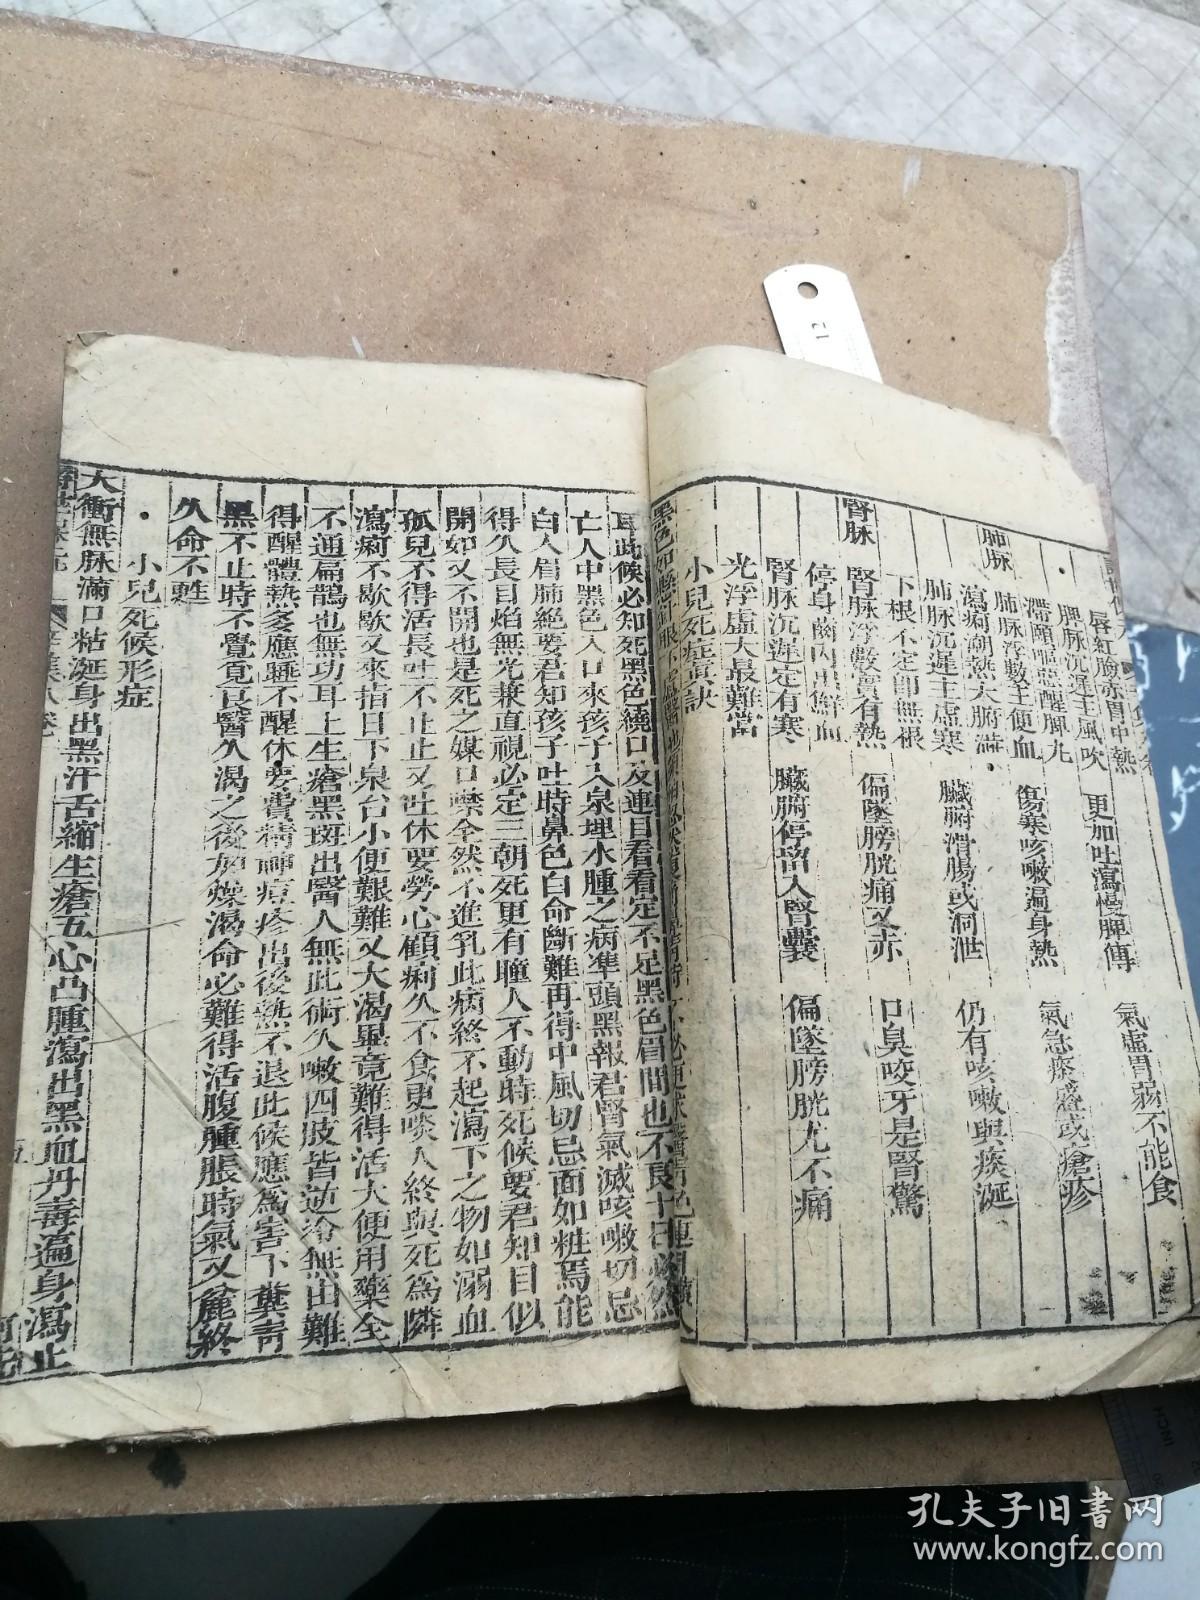 唇紅臉赤胃中熱 更加吐瀉慢脾傳 氣虛胃弱不能食
脾脉沉遲主風吹
滯頤嘔惡醒脾丸
肺脉
肺脉浮數主便血 傷寒咳嗽遍身熱 氣急 或瘡疹
瀉痢潮熱大腑
肺脉沉遲主虛寒 臟腑滑腸或洞泄 仍有咳嗽與痰涎
下根不定即無根
腎脉
腎脉浮數實有熱 偏墜膀胱痛又赤 口臭咬牙是腎驚
停身齒內出鮮血
腎脉沉遲定有寒 臟腑停留入腎囊 偏墜膀胱尤不痛
光浮虛大最難當
小兒死症真訣
黑色如
耳此候必知死黑色繞口及連目看看定不足黑色眉間也不良十日必然
亡人中黑色入口來孩子入泉埋水腫之病準頭黑報君腎氣滅咳嗽切忌
白人眉肺絕要君知孩子吐時鼻色白命斷難再得中風切忌面如粧焉能
得久長目焰無光兼直視必定三朝死更有瞳人不動時死候要君知目似
開如又不開也是死之媒口噤全然不進乳此病終不起瀉下之物如溺血
孤兒不得活長吐不止止又吐休要勞心顧痢久不食更啖人終與死為隣
瀉痢不歇歇又來指日下泉台小便艱難又大渴畢竟難得活大便用藥全
不通扁鵲也無功耳上生瘡黑斑出醫人無此術久嗽四肢皆逆冷無由難
得醒體熱多應睡不醒休要費精神痘疹出後熱不退此候應為害下糞青
黑不止時不覺覓良醫久渴之後加燥渴命必難得活腹腫脹時氣又麄終
久命不甦
小兒死候形症
大衝無脉滿口粘涎身出黑汗舌縮生瘡五心凸腫瀉出黑血丹毒遍身瀉止
12
INCH
孔夫子旧书网
www.kongfz.com